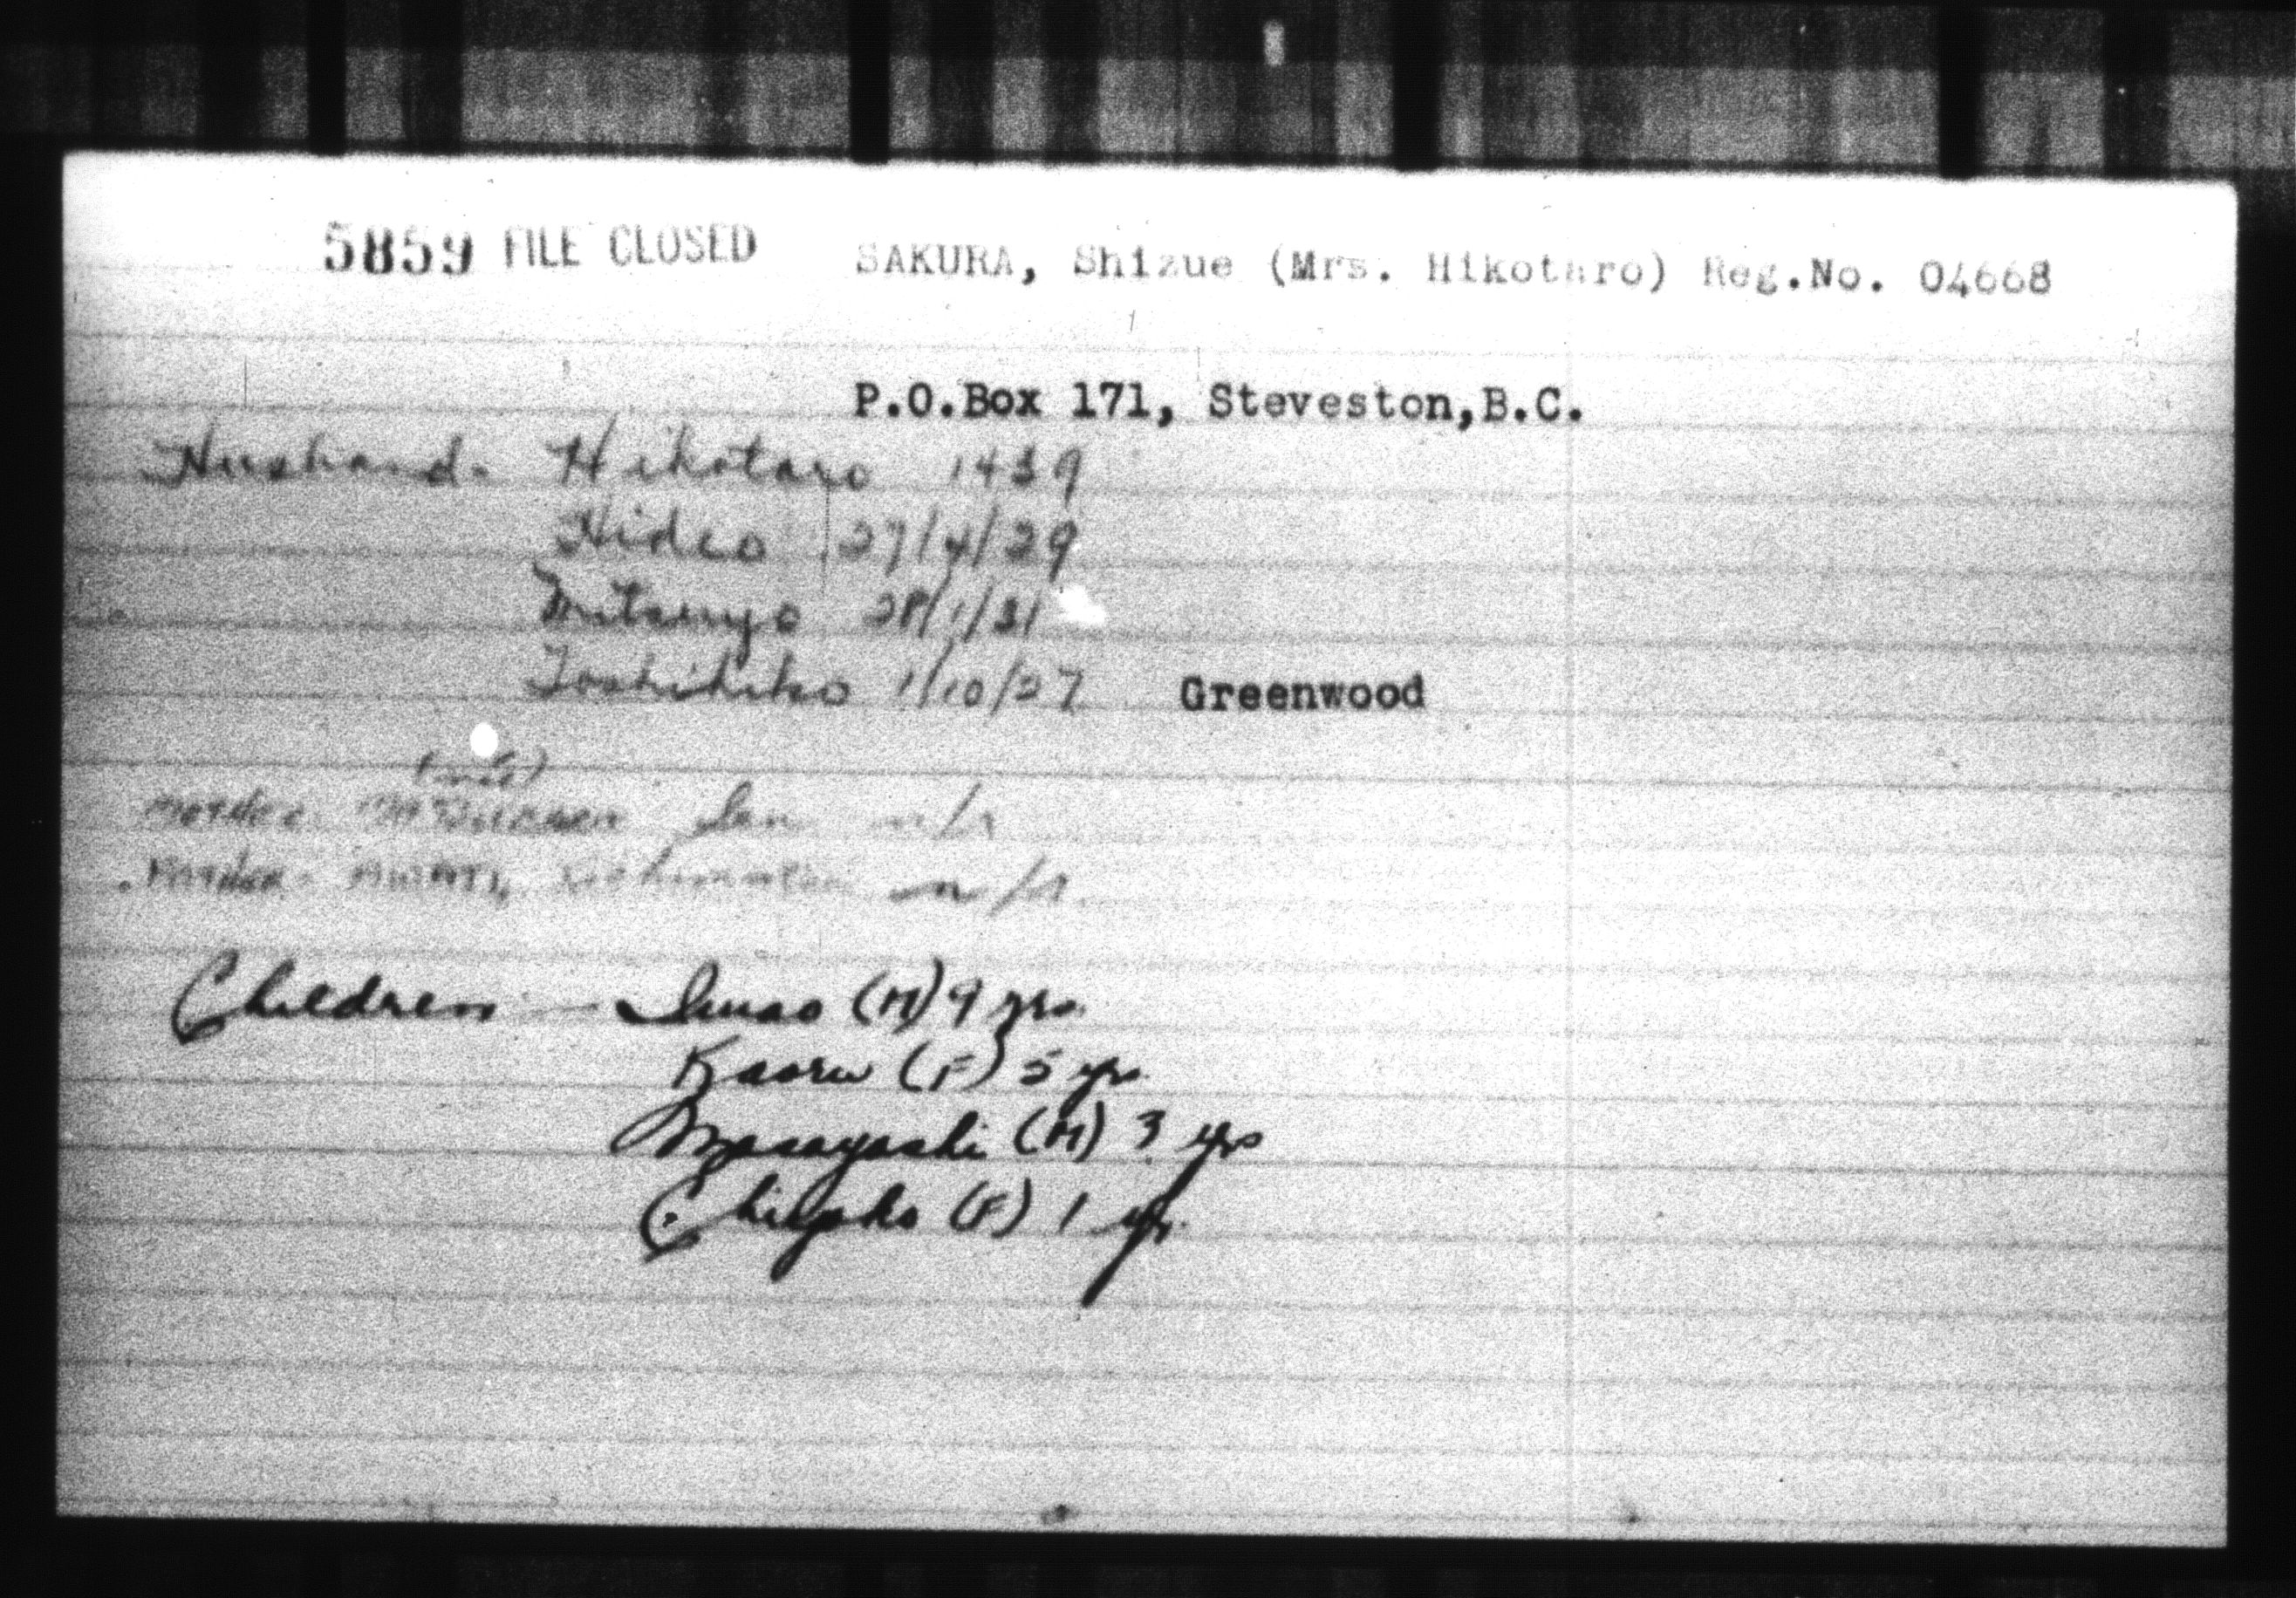 5859 FILE CLOSED SAKURA, Shizue (Mrs. Hikotaro) Reg.No. 04668
P.O.Box 171, Steveston,B.C.
Husband. Hikotaro 1439
Hideo 27/4/29
Mitsuyo 28/1/31
Toshihiko 1/10/27 Greenwood
(née)
Mother Sen n/r
Father n/r
Children - Isuao (M) 9 yrs.
Kaoru (F) 5 yrs.
Masayoshi (M) 3 yrs
Chiyoko (F) 1 yr.